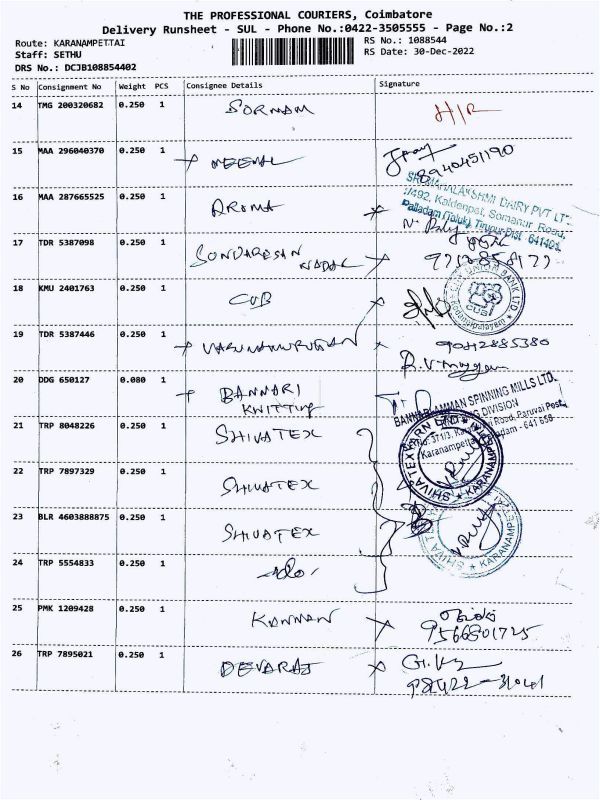 THE PROFESSIONAL COURIERS, Coimbatore
Delivery Runsheet - SUL - Phone No.:0422-3505555 - Page No.:2
Route: KARANAMPETTAI
RS No.: 1088544
Staff: SETHU
RS Date: 30-Dec-2022
DRS No.: DCJB108854402
S No Consignment No Weight PCS Consignee Details Signature
14 TMG 200320682 0.250 1 SORNAM H/R
15 MAA 296040370 0.250 1
8940451190
16 MAA 287665525 0.250 1 AROMA
SRI MAHALAKSHMI DAIRY PVT LTD.
1/492, Kaldenpet, Somanur Road,
Palladam (Taluk), Tirupur Dist. 641401.
17 TDR 5387098 0.250 1 SONDARESAN
NADAL
18 KMU 2401763 0.250 1 CUB
CITY UNION BANK LTD
CUB
Kodangipalayam
19 TDR 5387446 0.250 1 VARUNAMURUGAN
9042885380
20 DDG 650127 0.080 1 BANNARI
KNITTING
BANNARI AMMAN SPINNING MILLS LTD.
DIVISION
Road, Paruvai Post,
Karanampettai, - 641 658
21 TRP 8048226 0.250 1 SHIVATEX
SHIVATEX YARN LTD
KARANAMPETTAI
22 TRP 7897329 0.250 1 SHIVATEX
23 BLR 4603888875 0.250 1 SHIVATEX
SHIVA TEX
KARANAMPETTAI
24 TRP 5554833 0.250 1 -do-
25 PMK 1209428 0.250 1 KANNAN
9566801725
26 TRP 7895021 0.250 1 DEVARAJ